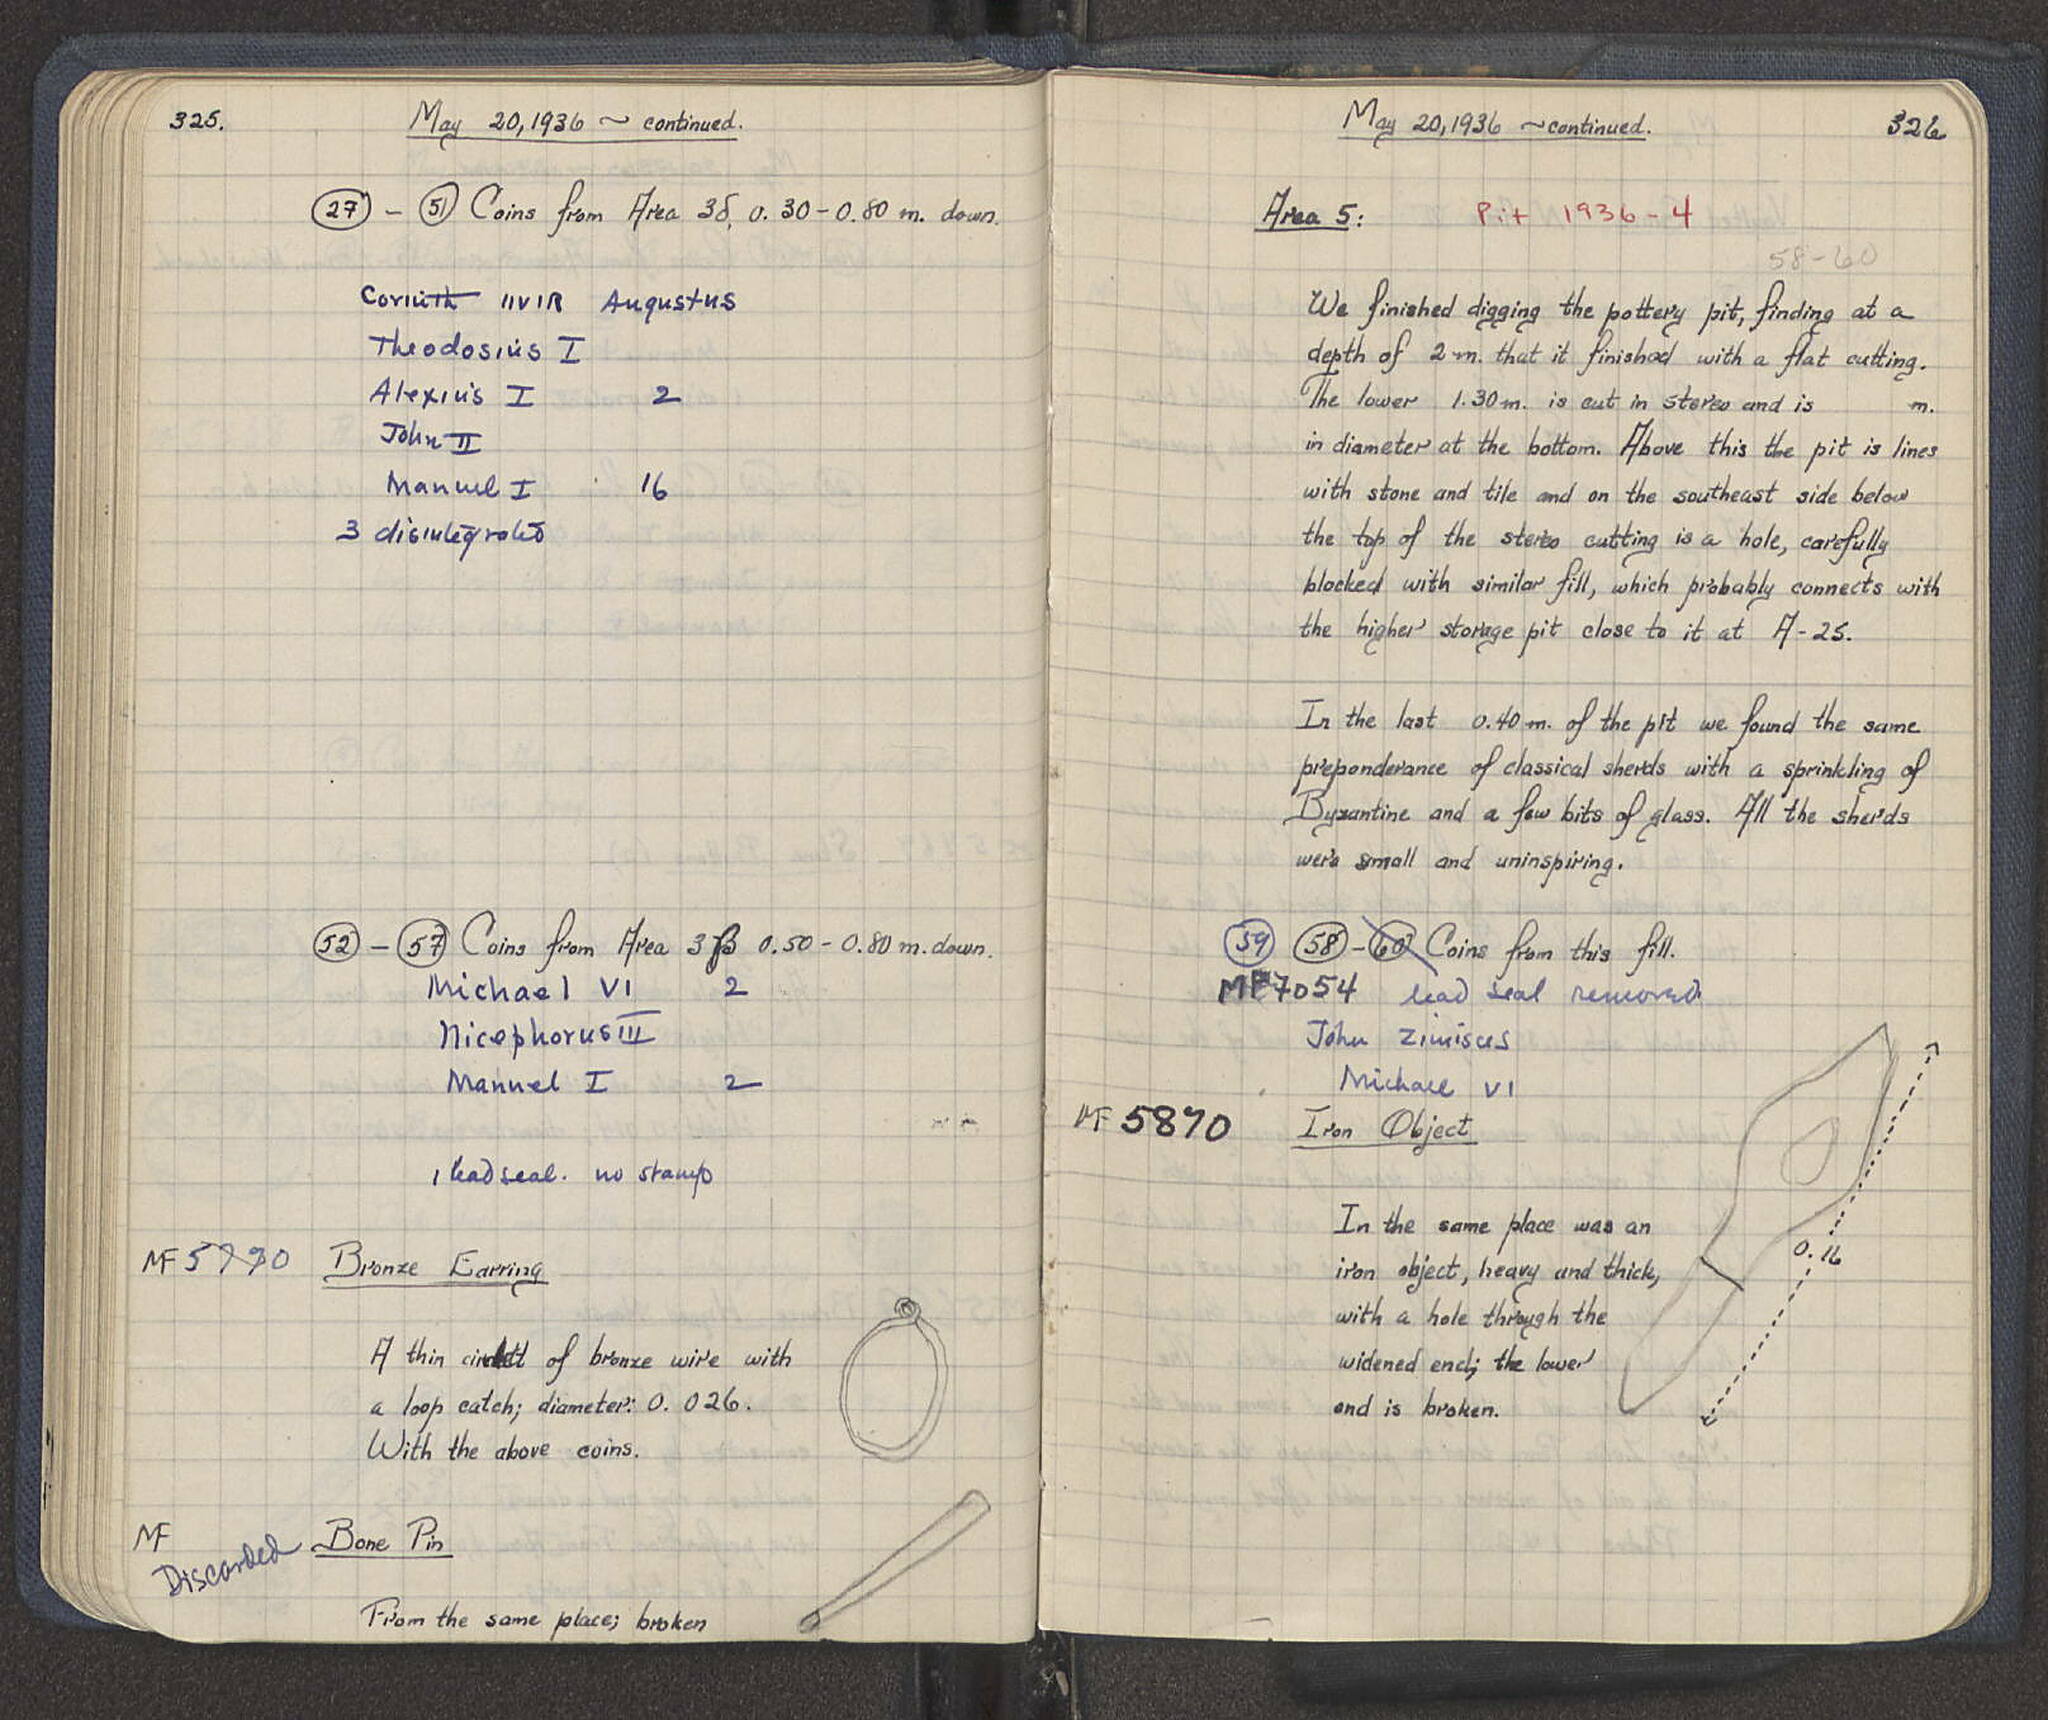 325.
May 20, 1936 ~ continued.
27 - 51 Coins from Area 3δ, 0.30-0.80 m. down.
Corinth IIVIR Augustus
Theodosius I
Alexius I 2
John II
Manuel I 16
3 disintegrated
52 - 57 Coins from Area 3β 0.50-0.80 m. down.
Michael VI 2
Nicephorus III
Manuel I 2
1 lead seal. no stamp
MF Bronze Earring
A thin of bronze wire with
a loop catch; diameter: 0.026.
With the above coins.
MF
Discarded Bone Pin
From the same place; broken
May 20, 1936 ~ continued.
326
Area 5: Pit 1936-4
58-60
We finished digging the pottery pit, finding at a
depth of 2 m. that it finished with a flat cutting.
The lower 1.30 m. is cut in stereo and is m.
in diameter at the bottom. Above this the pit is lines
with stone and tile and on the southeast side below
the top of the stereo cutting is a hole, carefully
blocked with similar fill, which probably connects with
the higher storage pit close to it at A-25.
In the last 0.40 m. of the pit we found the same
preponderance of classical sherds with a sprinkling of
Byzantine and a few bits of glass. All the sherds
were small and uninspiring.
59 58-60 Coins from this fill.
MF 7054 lead seal removed
John Zimisces
Michael VI
MF 5870 Iron Object
In the same place was an
iron object, heavy and thick,
with a hole through the
widened end; the lower
end is broken.
0.16